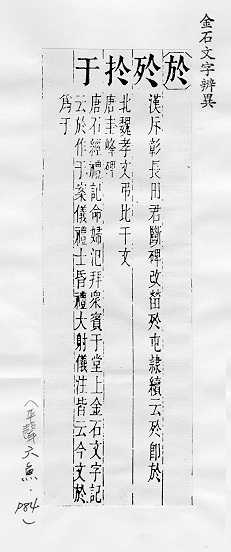 金石文字辨異
於 扵 扵 于
漢斥彰長田君斷碑改葘扵屯隷續云扵即於
北魏孝文弔比干文
唐圭峰碑
唐石經禮記命婦氾拜衆賓于堂上金石文字記
云於作于案儀禮士昏禮大射儀注皆云今文於
爲于
(平聲六魚·P84)